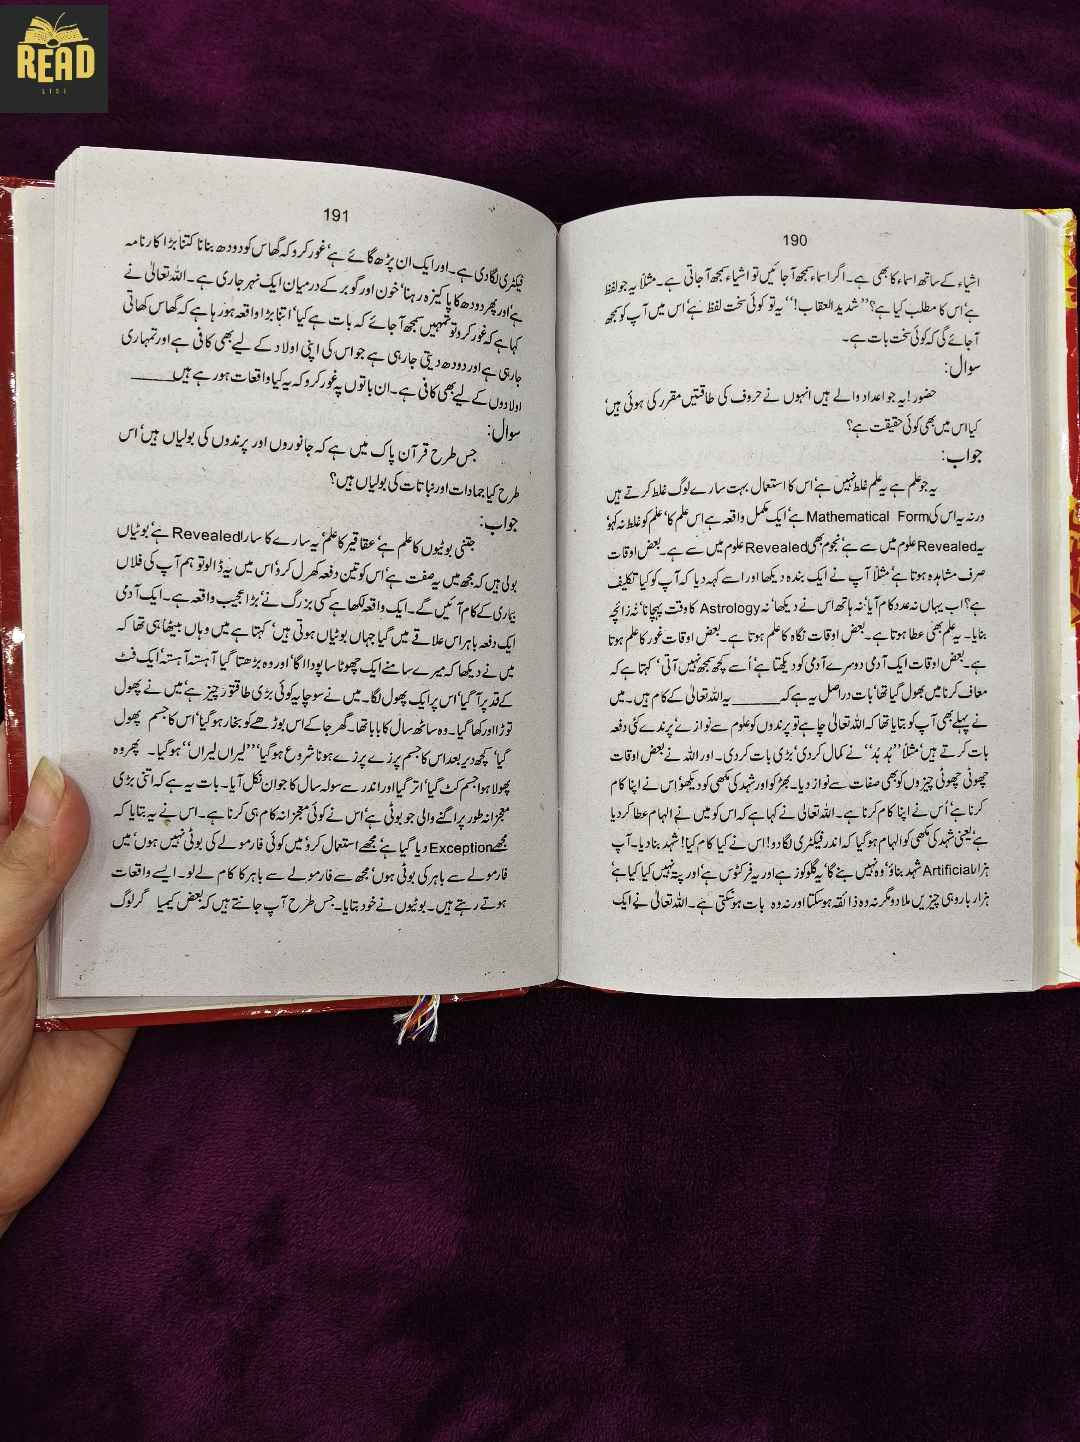 READ
LISI
190
اشیاء کے ساتھ اسماء کا بھی ہے۔ اگر اسماء سمجھ آ جائیں تو اشیاء سمجھ آ جاتی ہے۔ مثلاً یہ جو لفظ
ہے' اس کا مطلب کیا ہے؟ ''شدید العقاب!'' یہ تو کوئی سخت لفظ ہے' اس میں آپ کو سمجھ
آ جائے گی کہ کوئی سخت بات ہے۔
سوال:
حضور! یہ جو اعداد والے ہیں انہوں نے حروف کی طاقتیں مقرر کی ہوئی ہیں'
کیا اس میں بھی کوئی حقیقت ہے؟
جواب:
یہ جو علم ہے یہ علم غلط نہیں ہے' اس کا استعمال بہت سارے لوگ غلط کرتے ہیں
ورنہ یہ اس کی Mathematical Form ہے' ایک مکمل واقعہ ہے اس علم کا' علم کو غلط نہ کہو'
یہ Revealed علوم میں سے ہے' نجوم بھی Revealed علوم میں سے ہے۔ بعض اوقات
صرف مشاہدہ ہوتا ہے' مثلاً آپ نے ایک بندہ دیکھا اور اسے کہہ دیا کہ آپ کو کیا تکلیف
ہے؟ اب یہاں نہ عدد کام آیا' نہ ہاتھ اس نے دیکھا' نہ Astrology کا وقت پہچانا' نہ زائچہ
بنایا۔ یہ علم بھی عطا ہوتا ہے۔ بعض اوقات نگاہ کا علم ہوتا ہے۔ بعض اوقات غور کا علم ہوتا
ہے۔ بعض اوقات ایک آدمی دوسرے آدمی کو دیکھتا ہے' اُسے کچھ سمجھ نہیں آتی' کہتا ہے کہ
معاف کرنا میں بھول گیا تھا' بات دراصل یہ ہے کہ ـــــــ یہ اللہ تعالیٰ کے کام ہیں۔ میں
نے پہلے بھی آپ کو بتایا تھا کہ اللہ تعالیٰ چاہے تو پرندوں کو علوم سے نوازے' پرندے کئی دفعہ
بات کرتے ہیں' مثلاً ''ہُد ہُد'' نے کمال کر دی' بڑی بات کر دی۔ اور اللہ نے بعض اوقات
چھوٹی چھوٹی چیزوں کو بھی صفات سے نواز دیا۔ بھڑ کو اور شہد کی مکھی کو دیکھو' اِس نے اپنا کام
کرنا ہے' اُس نے اپنا کام کرنا ہے۔ اللہ تعالیٰ نے کہا ہے کہ اس کو میں نے الہام عطا کر دیا
ہے' یعنی شہد کی مکھی کو الہام ہو گیا کہ اندر فیکٹری لگا دو! اس نے کیا کام کیا! شہد بنا دیا۔ آپ
ہزار Artificial شہد بناؤ' وہ نہیں بنے گا' یہ گلوکوز ہے اور یہ فرکٹوس ہے' اور پتہ نہیں کیا کیا ہے'
ہزار بار وہی چیزیں ملا دو مگر نہ وہ ذائقہ ہو سکتا اور نہ وہ بات ہو سکتی ہے۔ اللہ تعالیٰ نے ایک
191
فیکٹری لگا دی ہے۔ اور ایک ان پڑھ گائے ہے' غور کرو کہ گھاس کو دودھ بنانا کتنا بڑا کارنامہ
ہے' اور پھر دودھ کا پاکیزہ رہنا' خون اور گوبر کے درمیان ایک نہر جاری ہے۔ اللہ تعالیٰ نے
کہا ہے کہ غور کرو تو تمہیں سمجھ آ جائے کہ بات ہے کیا' اتنا بڑا واقعہ ہو رہا ہے کہ گھاس کھاتی
جا رہی ہے اور دودھ دیتی جا رہی ہے جو اس کی اپنی اولاد کے لیے بھی کافی ہے اور تمہاری
اولادوں کے لیے بھی کافی ہے۔ ان باتوں پہ غور کرو کہ یہ کیا واقعات ہو رہے ہیں ـــــــ
سوال:
جس طرح قرآن پاک میں ہے کہ جانوروں اور پرندوں کی بولیاں ہیں' اس
طرح کیا جمادات اور نباتات کی بولیاں ہیں؟
جواب:
جتنی بوٹیوں کا علم ہے' عقاقیر کا علم' یہ سارے کا سارا Revealed ہے' بوٹیاں
بولی ہیں کہ مجھ میں یہ صفت ہے' اس کو تین دفعہ کھرل کرو' اس میں یہ ڈالو تو ہم آپ کی فلاں
بیماری کے کام آئیں گے۔ ایک واقعہ لکھا ہے کسی بزرگ نے' بڑا عجیب واقعہ ہے۔ ایک آدمی
ایک دفعہ باہر اس علاقے میں گیا جہاں بوٹیاں ہوتی ہیں' کہتا ہے میں وہاں بیٹھا ہی تھا کہ
میں نے دیکھا کہ میرے سامنے ایک چھوٹا سا پودا اگا' اور وہ بڑھتا گیا آہستہ آہستہ' ایک فٹ
کے قد پر آ گیا' اس پر ایک پھول لگا۔ میں نے سوچا یہ کوئی بڑی طاقتور چیز ہے' میں نے پھول
توڑا اور کھا گیا۔ وہ ساٹھ سال کا بابا تھا۔ گھر جا کے اس بوڑھے کو بخار ہو گیا' اس کا جسم پھول
گیا' کچھ دیر بعد اس کا جسم پرزے پرزے ہونا شروع ہو گیا' ''لیراں لیراں'' ہو گیا۔ پھر وہ
پھولا ہوا جسم کٹ گیا' اتر گیا اور اندر سے سولہ سال کا جوان نکل آیا۔ بات یہ ہے کہ اتنی بڑی
معجزانہ طور پر اگنے والی جو بوٹی ہے' اس نے کوئی معجزانہ کام ہی کرنا ہے۔ اس نے یہ بتایا کہ
مجھے Exception دیا گیا ہے' مجھے استعمال کرو' میں کوئی فارمولے کی بوٹی نہیں ہوں' میں
فارمولے سے باہر کی بوٹی ہوں' مجھ سے فارمولے سے باہر کا کام لے لو۔ ایسے واقعات
ہوتے رہتے ہیں۔ بوٹیوں نے خود بتایا۔ جس طرح آپ جانتے ہیں کہ بعض کیمیا گر لوگ